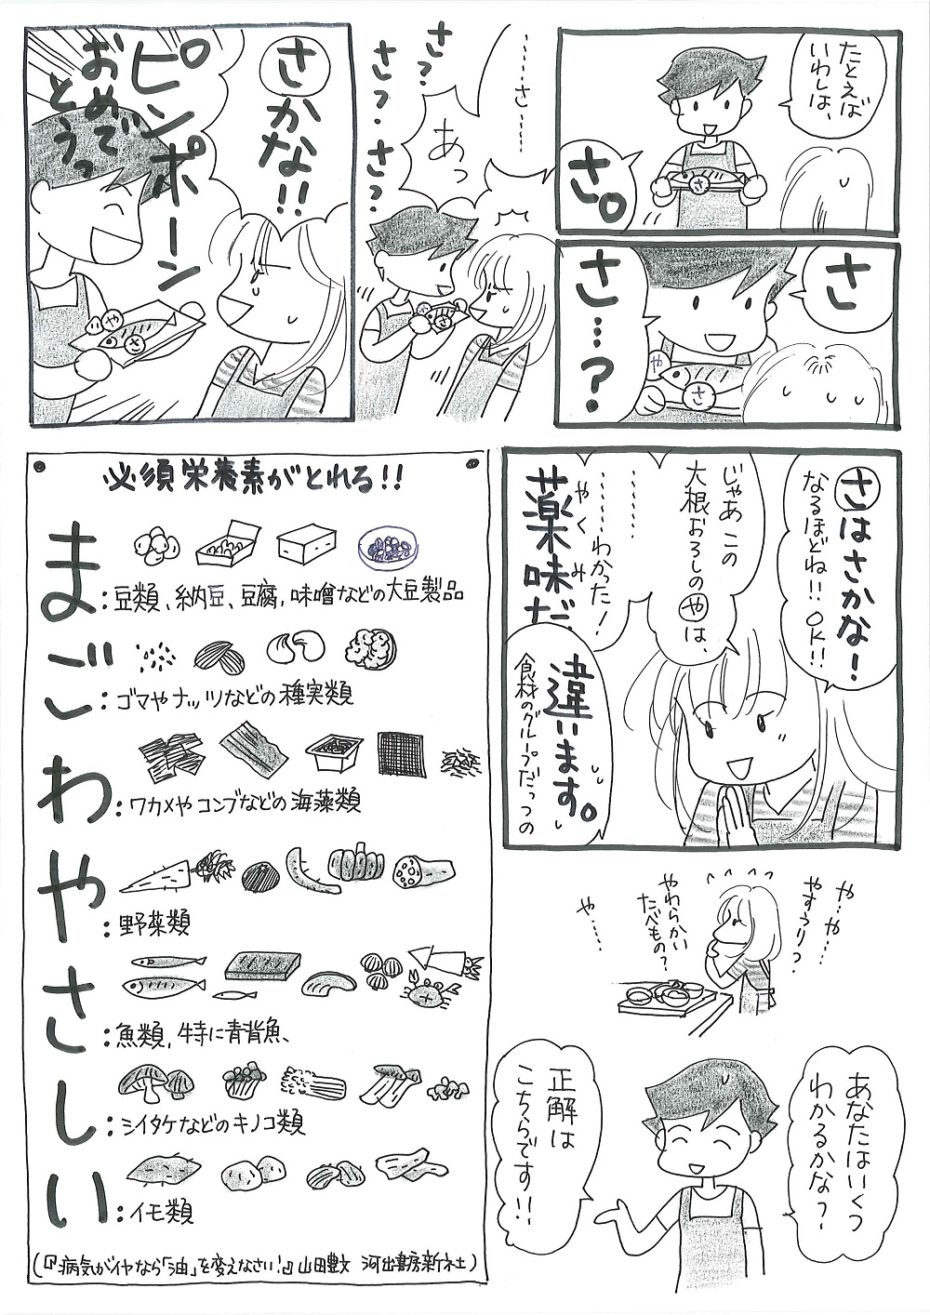 たとえば
いわしは、
さ。
さ
さ
さ…?
や
さ
……さ……
あっ
さ?
さ?さ?
さ
さかな!!
ピンポーン
おめで
とうっ
い
や
さ
さはさかな!
なるほどね!!OK!!
じゃあこの
大根おろしのやは、
………
……わかった!
薬味だ
やくみ
違います。
食材のグループだっつの
や…や…
やすうり?
やわらかい
たべもの?
や……
あなたはいくつ
わかるかな?
正解は
こちらです!!
必須栄養素がとれる!!
ま:豆類、納豆、豆腐,味噌などの大豆製品
ご:ゴマやナッツなどの種実類
わ:ワカメやコンブなどの海藻類
や:野菜類
さ:魚類,特に青背魚、
し:シイタケなどのキノコ類
い:イモ類
(『病気がイヤなら「油」を変えなさい!』山田豊文 河出書房新社)